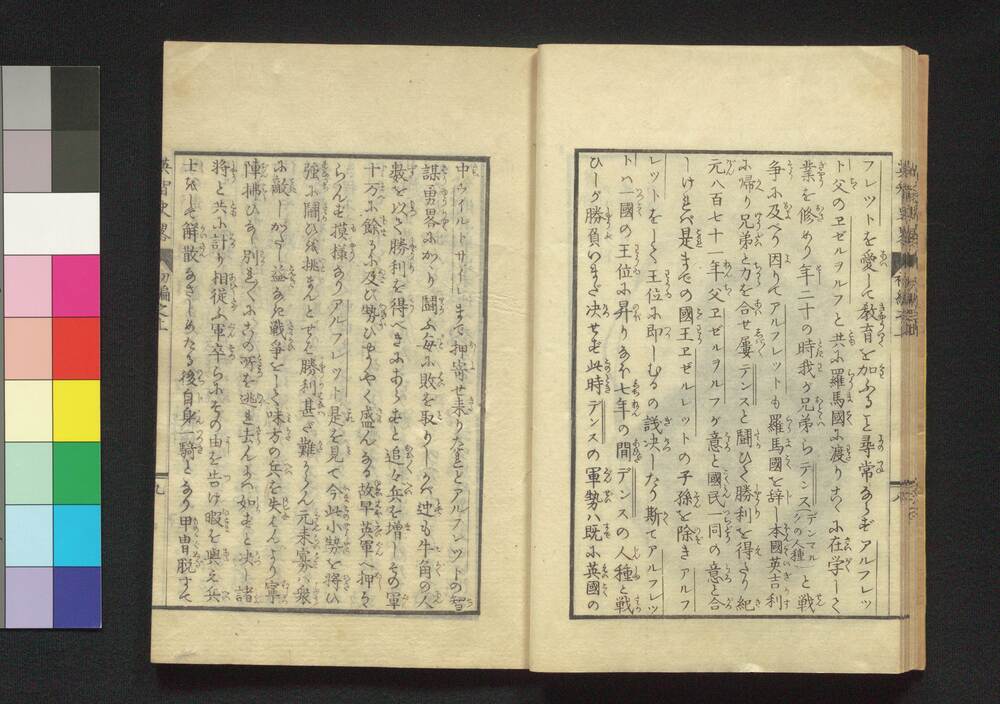 フレツトを愛して教育を加ふると尋常ならずアルフレツ
ト父のヱゼルヲルフと共に羅馬國に渡りさくに在学しく
業を修めり年二十の時我が兄弟らテンス デンマルクの人種 と戦
争に及べり因りてアルフレツトも羅馬國を辞し本國英吉利
に帰り兄弟と力を合せ屢テンスと鬪ひて勝利を得たり紀
元八百七十一年父ヱゼルヲルフが意と國民一同の意と合
しければ是までの國王ヱゼルレツトの子孫を除きアルフ
レツトをして王位に即しむるの議决したり斯てアルフレツ
トハ一國の王位に昇りなれ𪜈七年の間デンスの人種と戦
ひしが勝負いまだ决せず此時デンスの軍勢ハ既に英國の
中ウイルトサイルまで押寄せ来りたれどアルフレツトの智
謀勇畧にかくり鬪ふ毎に敗を取りしかバ迚も牛角の人
数を以て勝利を得べきにあらずと追々兵を増しその軍
十万に餘るに及び勢ひやうやく盛んなる故早英軍へ押か
らんず摸様ありアルフレツト是を見て今此小勢を将ひ
強に鬪ひを挑まんとせば勝利甚だ難からん元来寡ハ衆
に敵しがたし益なき戦争をして味方の兵を失はんより寧
陣拂ひなし別れ〱にこの所を逃れ去らんにハ如ずと决し諸
将と共に計り相従ふ軍卒らにその由を告け暇を與え兵
士をして解散なさしめたる後自身一騎となり甲冑脱すて